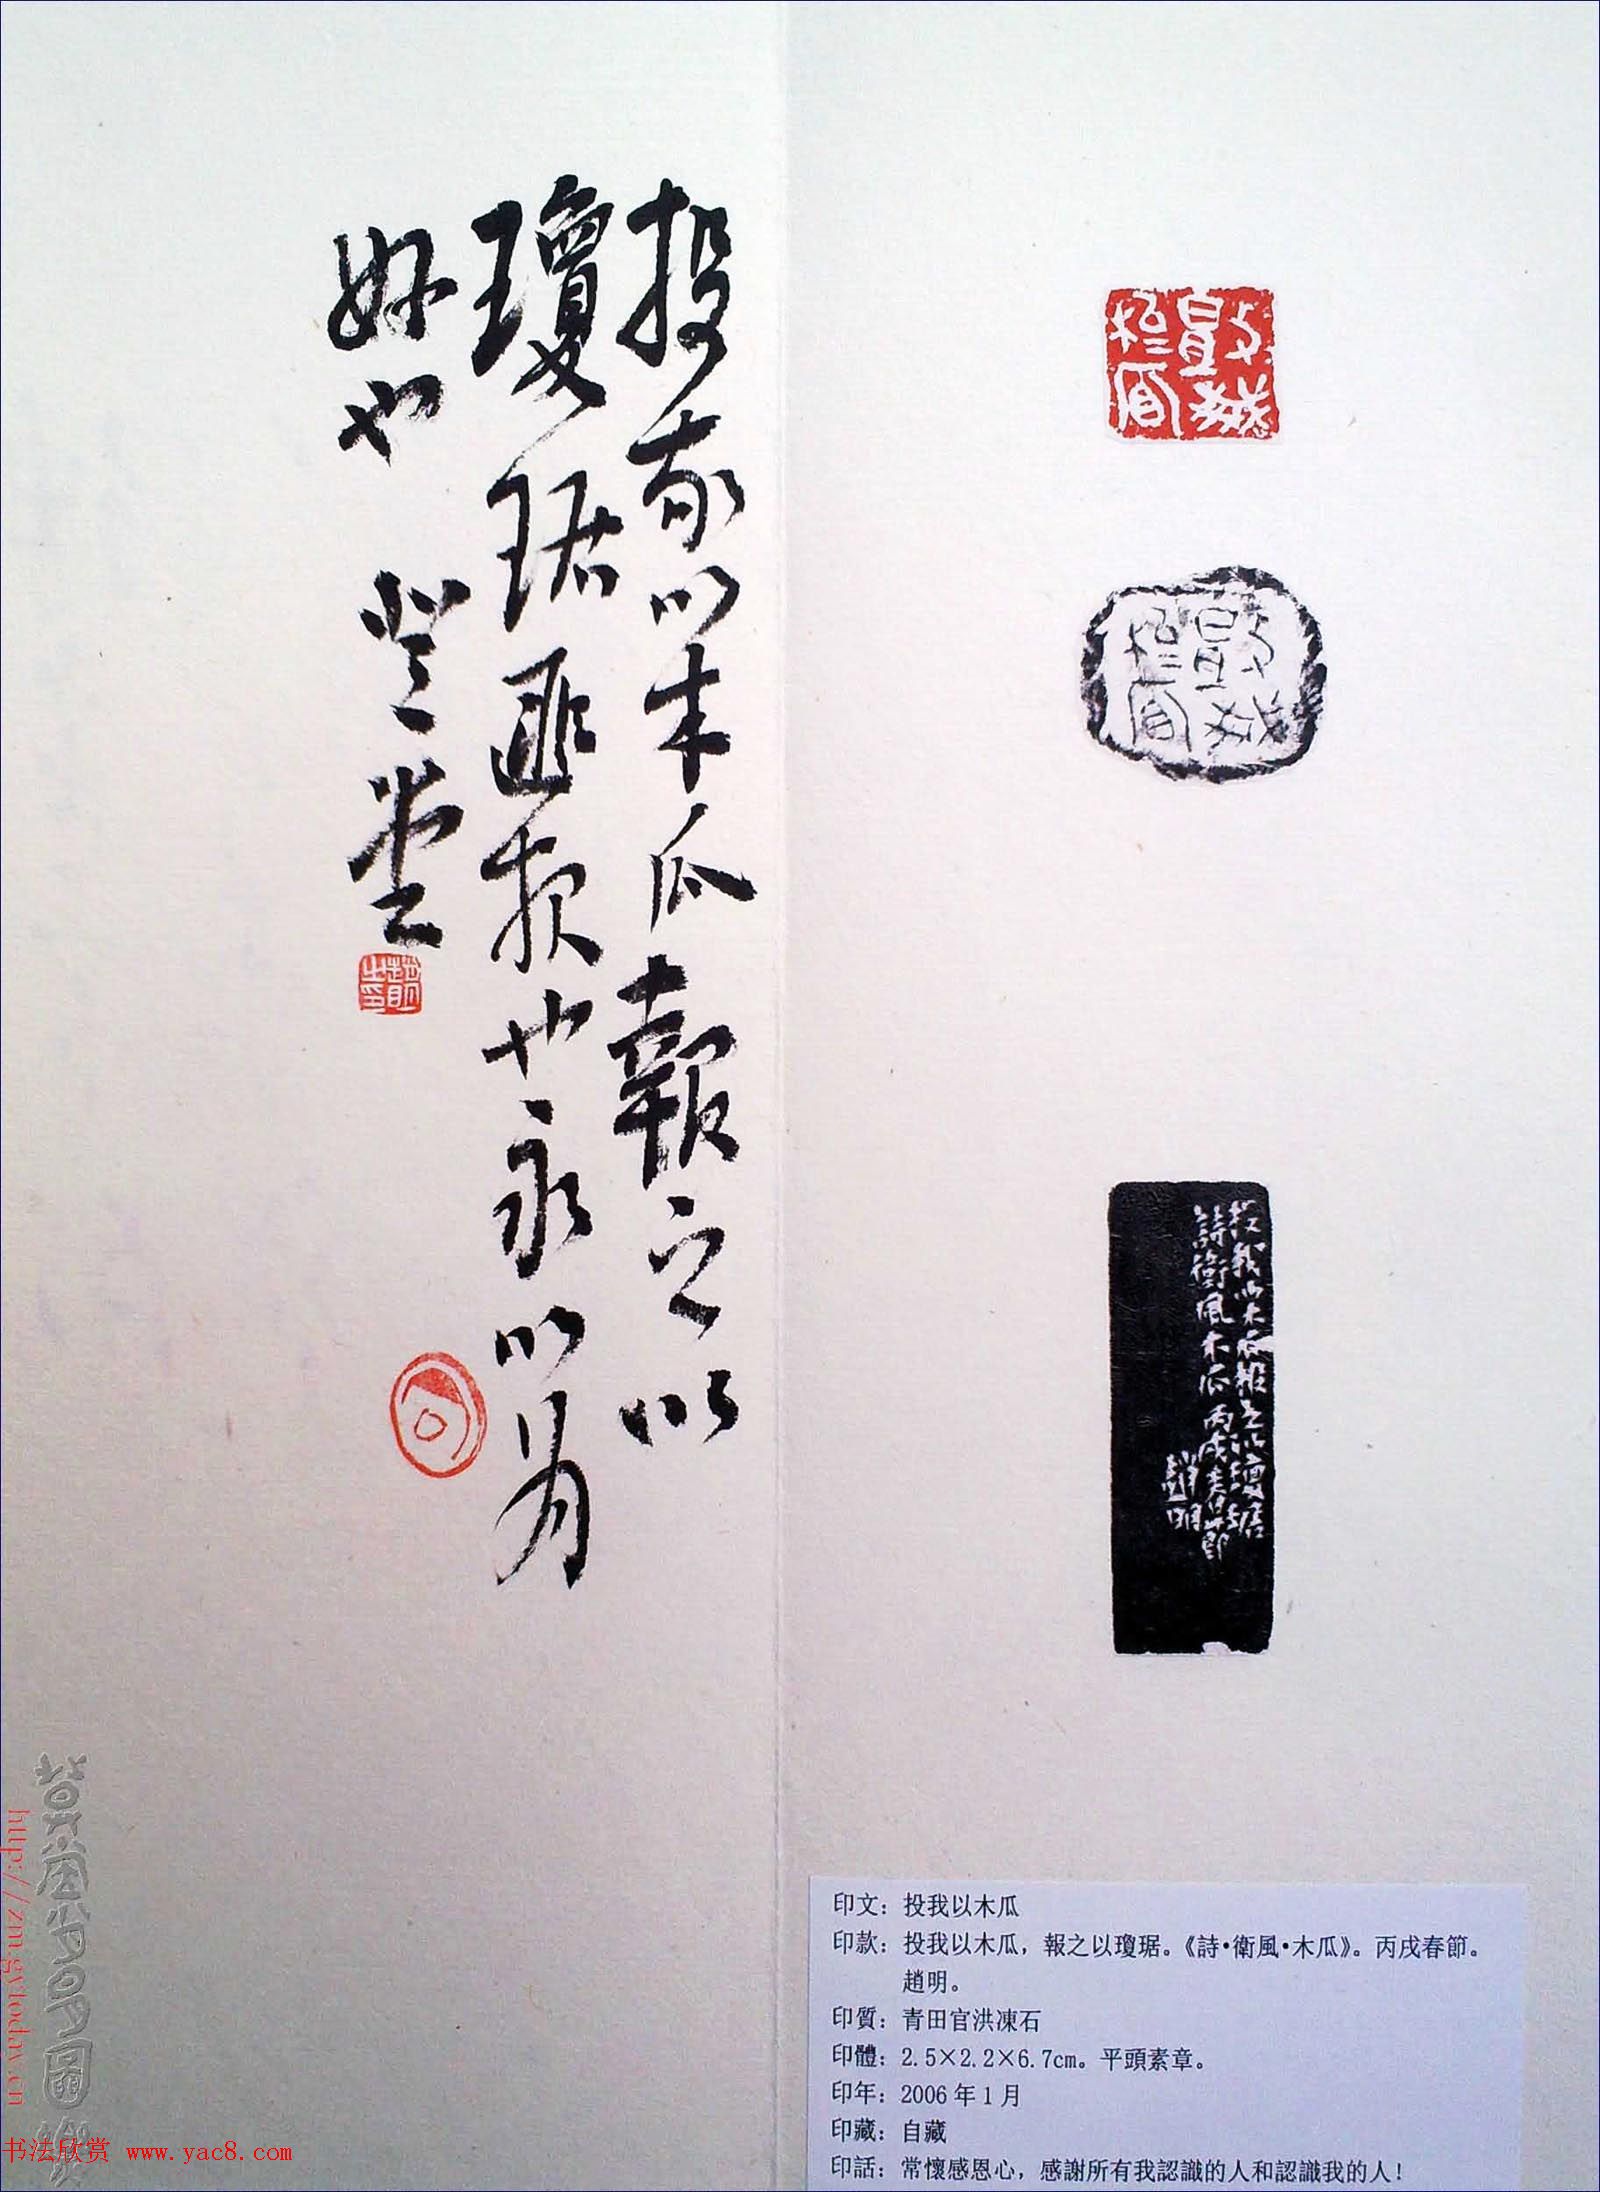 投我以木瓜報之以
瓊琚匪報也永以為
好也
投我以木瓜報之以瓊琚
詩衛風木瓜丙戌春節
趙明
印文：投我以木瓜
印款：投我以木瓜，報之以瓊琚。《詩·衛風·木瓜》。丙戌春節。
趙明。
印質：青田官洪凍石
印體：2.5×2.2×6.7cm。平頭素章。
印年：2006年1月
印藏：自藏
印話：常懷感恩心，感謝所有我認識的人和認識我的人！
http://zm.gytoday.cn
书法欣赏 www.yac8.com